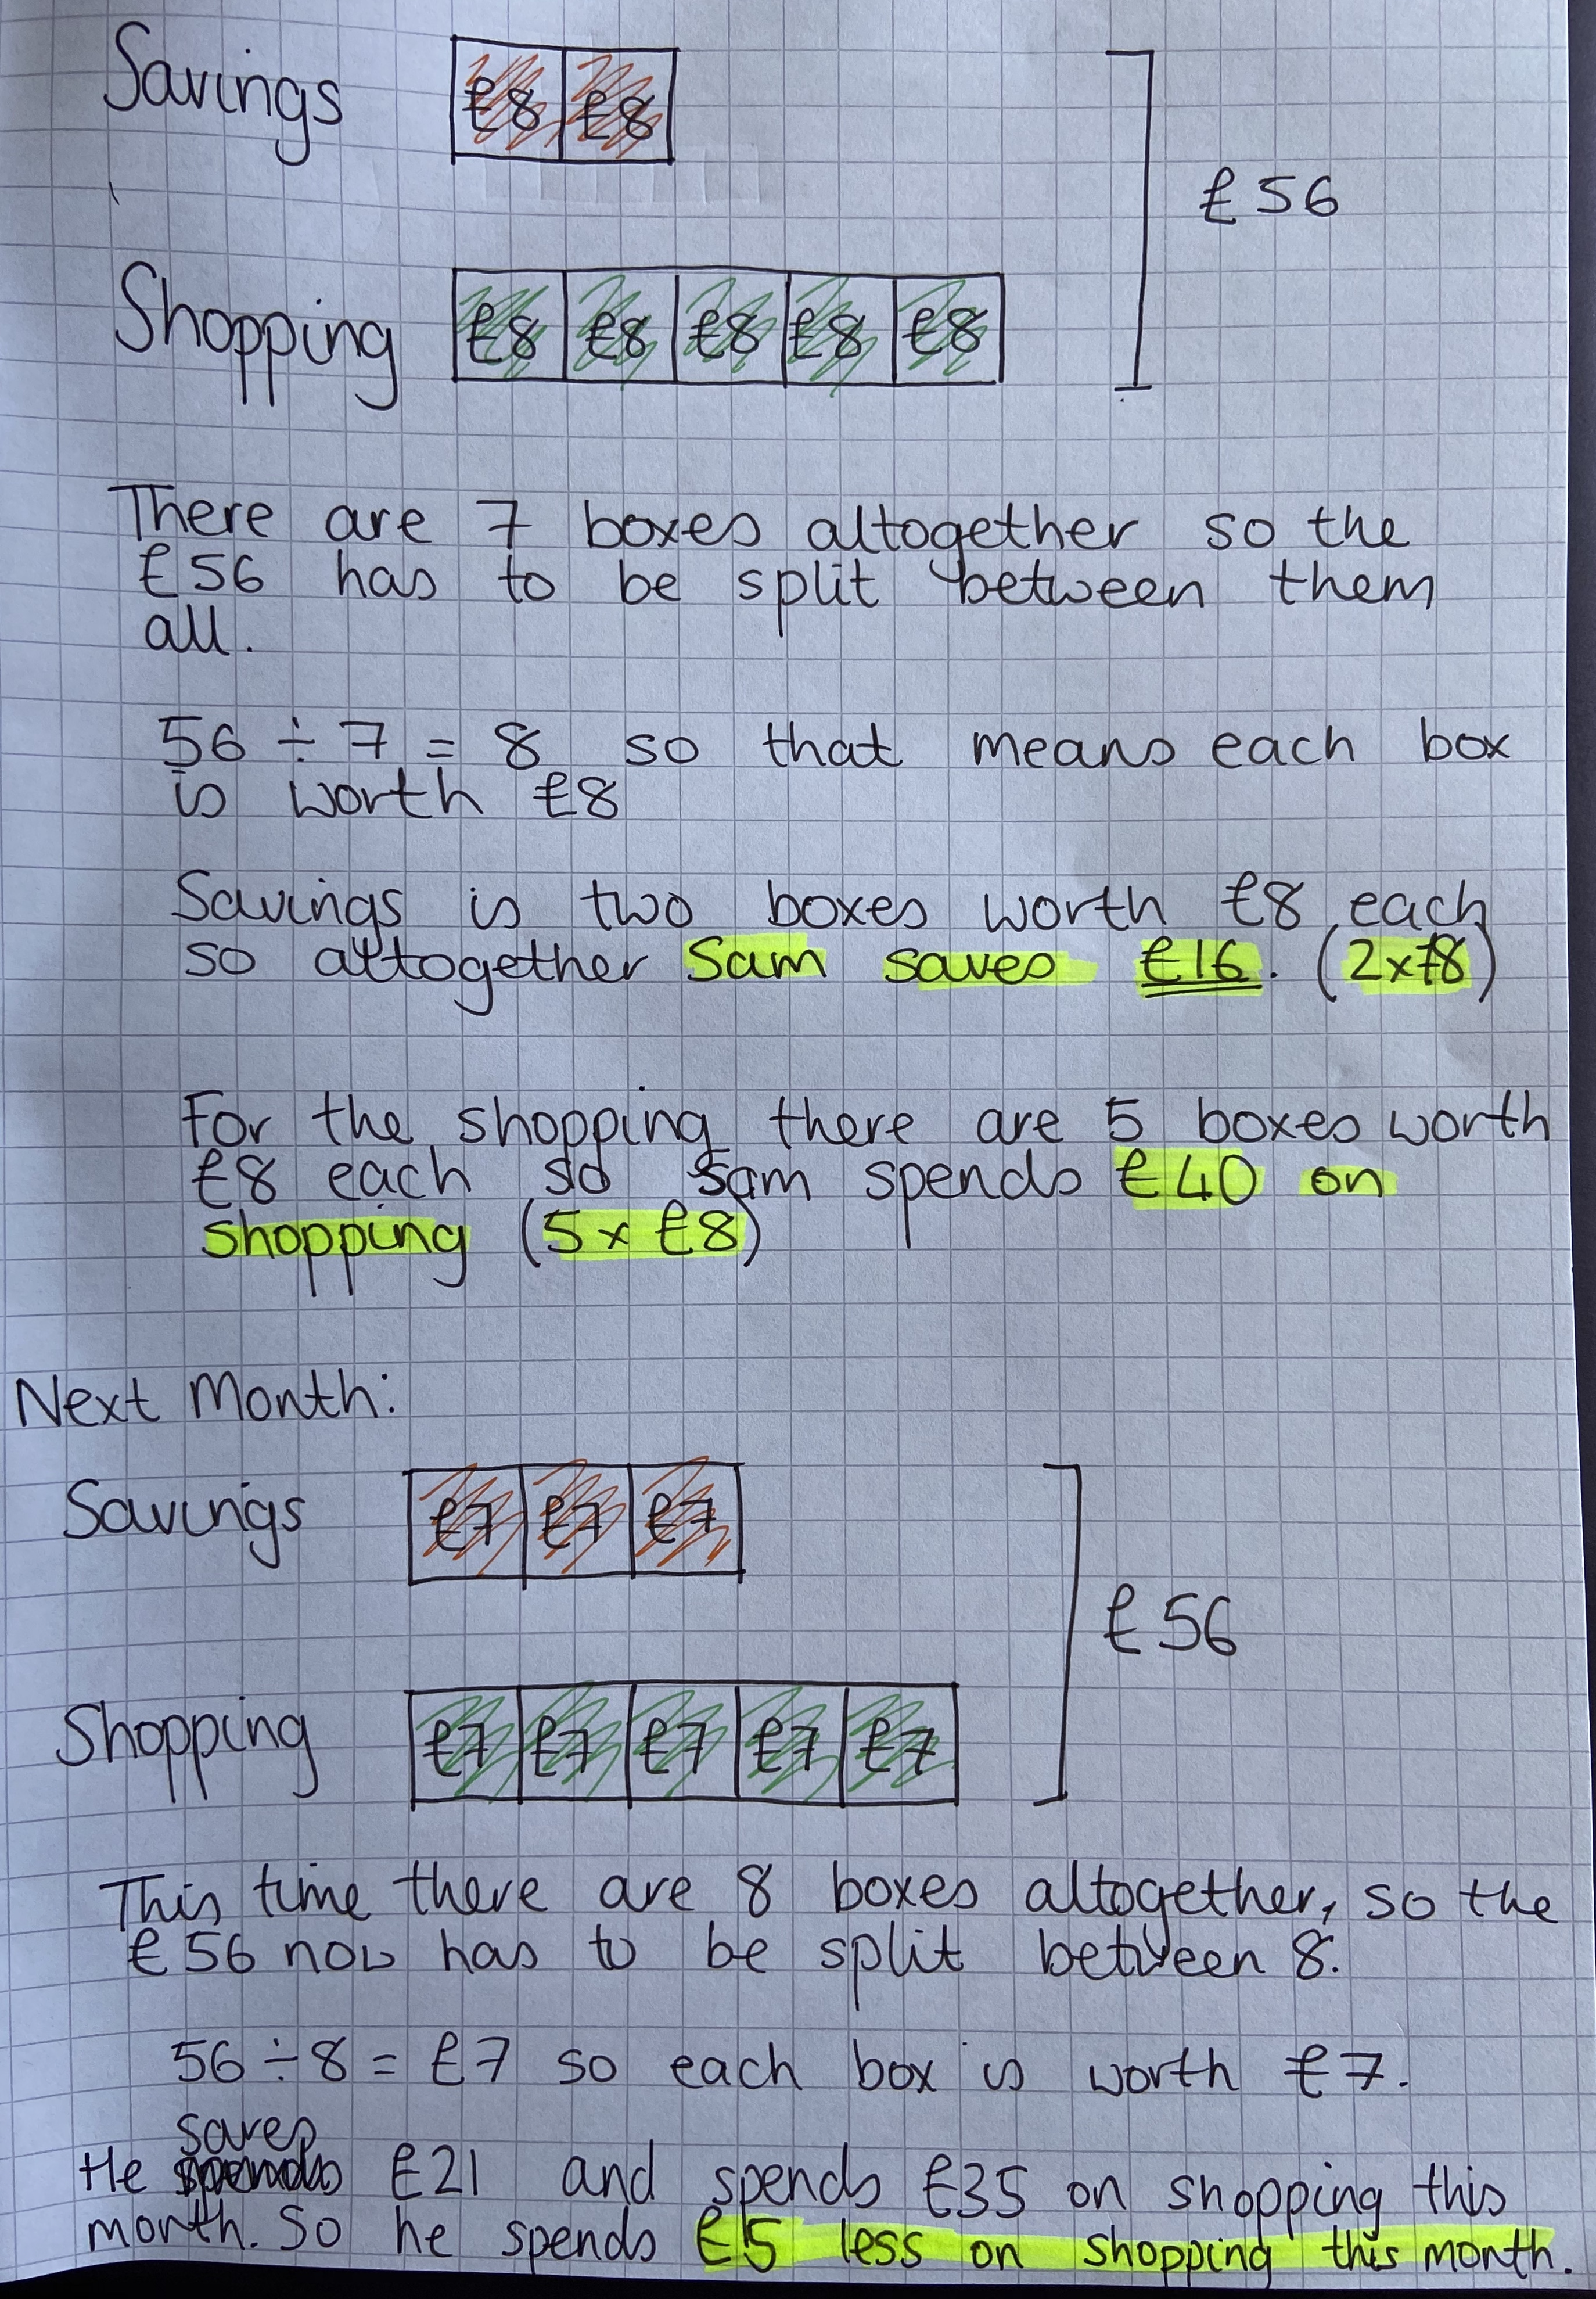 Savings £8 £8
£56
Shopping £8 £8 £8 £8 £8
There are 7 boxes altogether so the
£56 has to be split between them
all.
56 ÷ 7 = 8 so that means each box
is worth £8
Savings is two boxes worth £8 each
so altogether Sam saves £16. (2x£8)
For the shopping there are 5 boxes worth
£8 each so Sam spends £40 on
shopping (5 x £8)
Next Month:
Savings £7 £7 £7
£56
Shopping £7 £7 £7 £7 £7
This time there are 8 boxes altogether, so the
£56 now has to be split between 8.
56 ÷ 8 = £7 so each box is worth £7.
saves
He spends £21 and spends £35 on shopping this
month. So he spends £5 less on shopping this month.